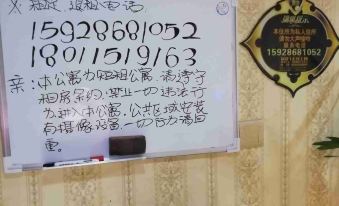 租赁、退租电话
15928681052
18011519163
亲:本公寓为短租公寓,请遵守
租房条约,禁止一切违法行
为进入本公寓,公共区域安装
有摄像设备,一切行为请自
重。
本住所为私人住所
请勿大声喧哗
服务电话
15928681052